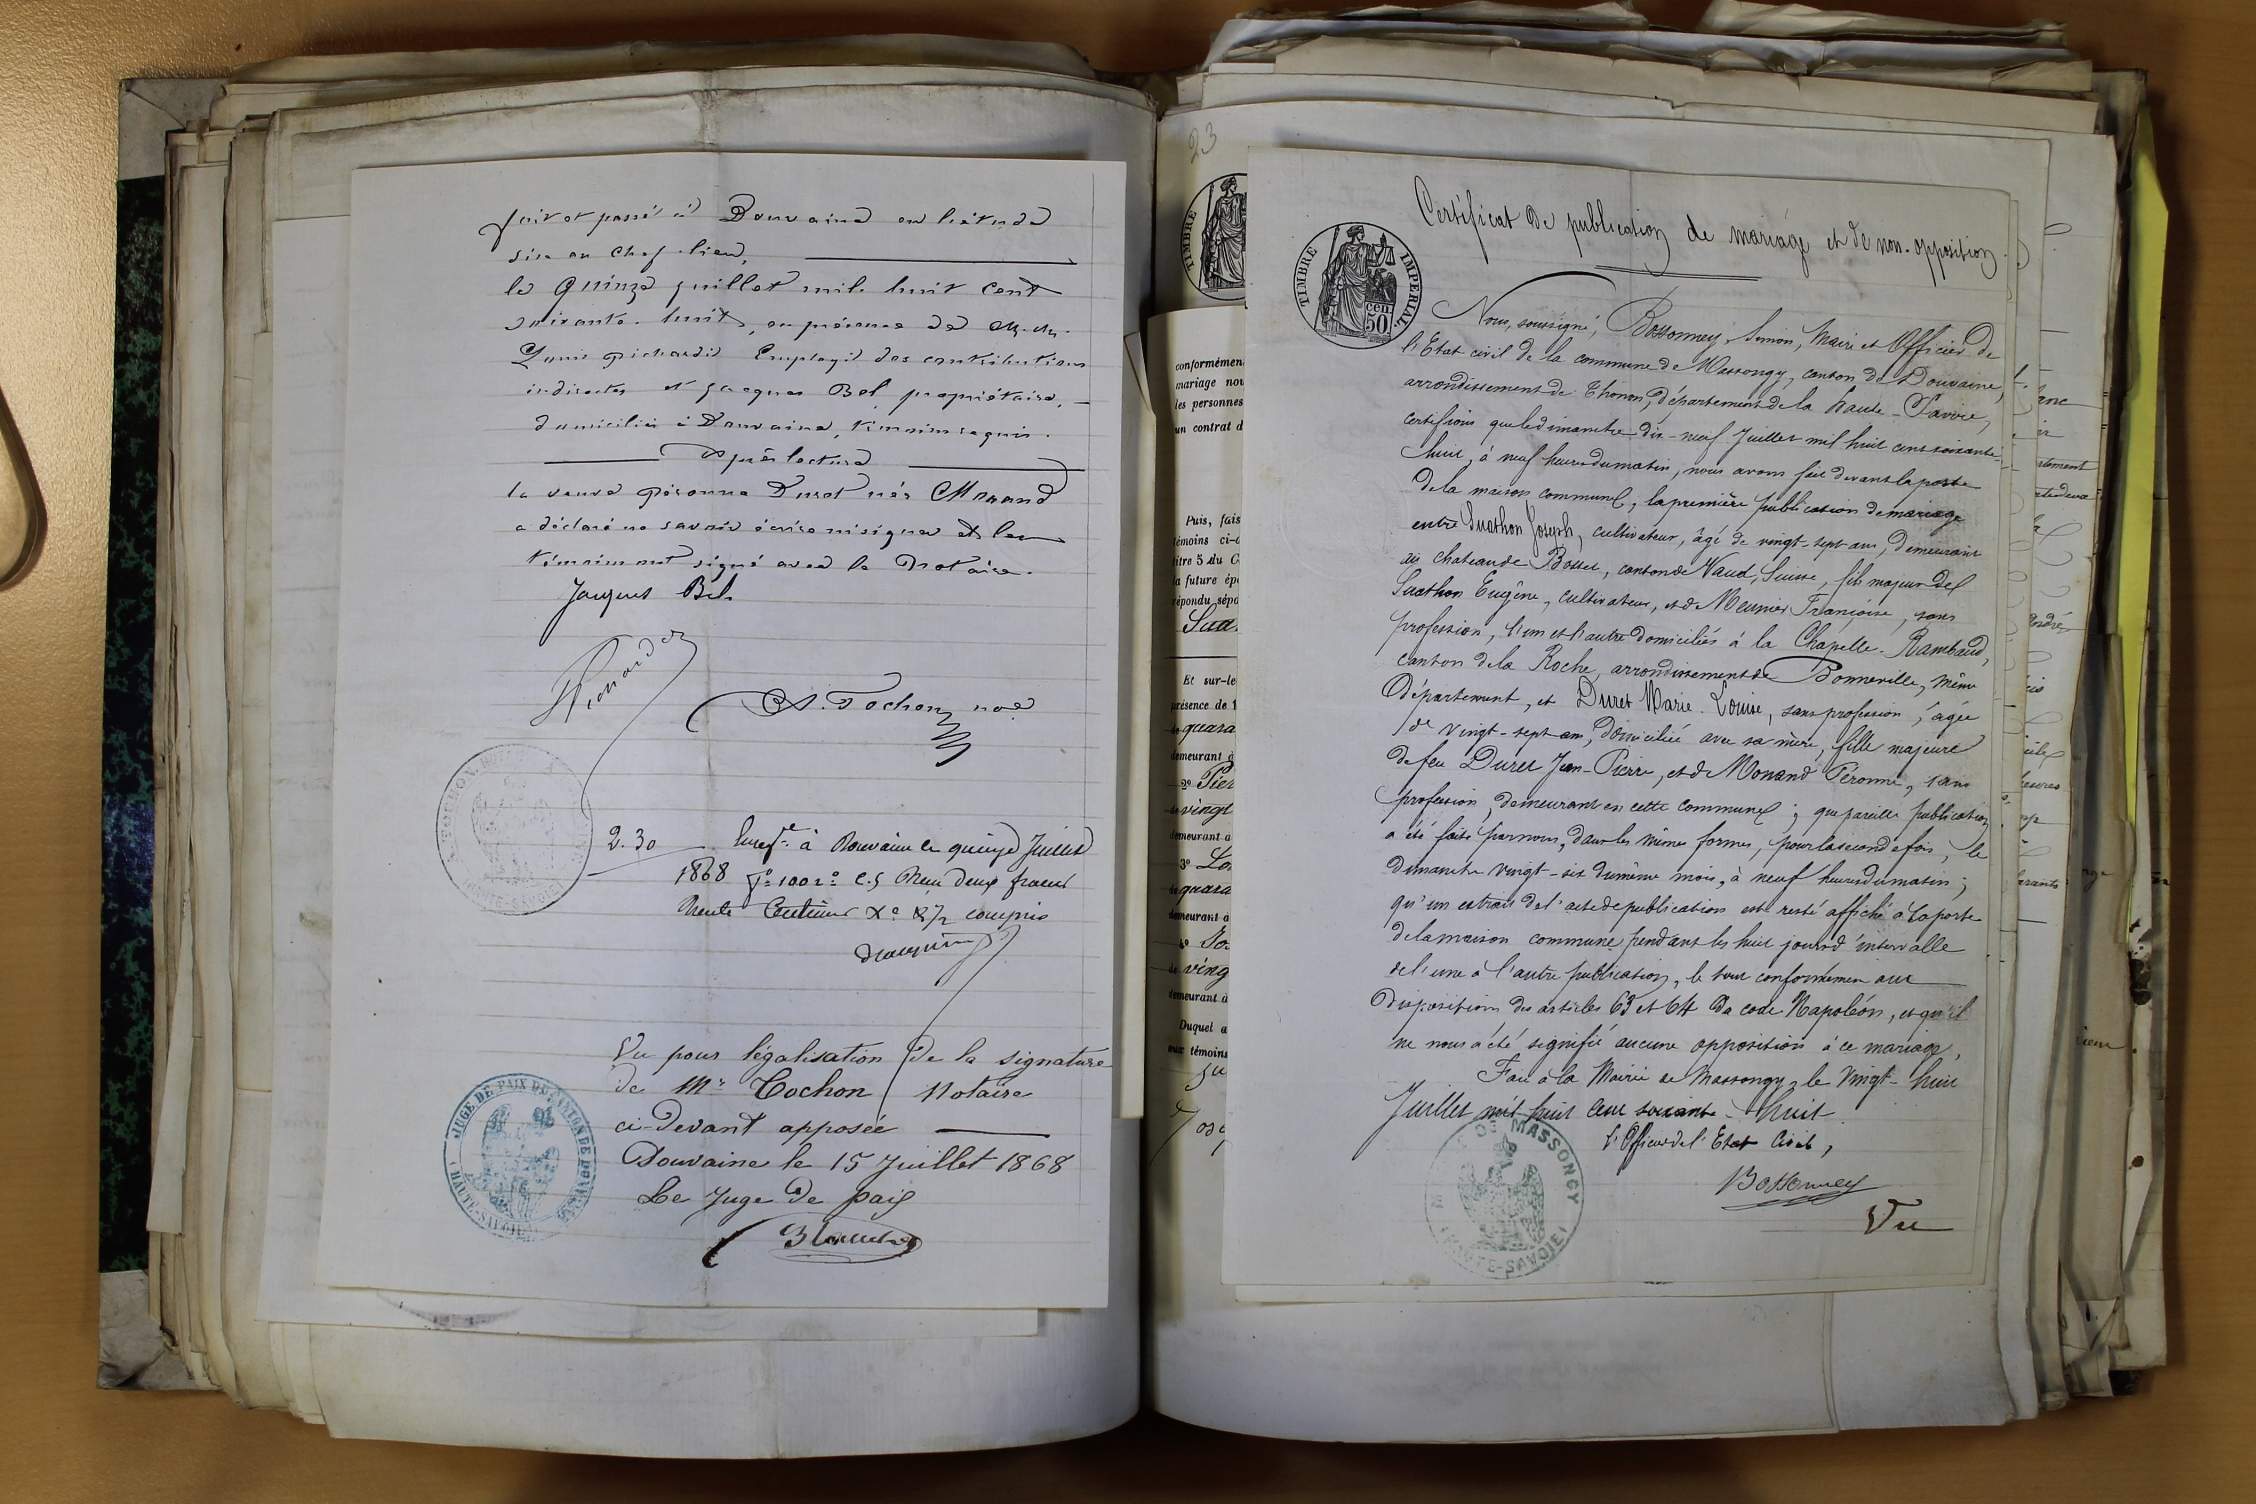 fait et passé à Douvaine en l'étude
sise au chef-lieu,
le quinze juillet mil huit cent
soixante-huit, en présence de M.M.
Louis Pichardi Employé des contributions
indirectes et Jacques Bel, propriétaire,
domiciliés à Douvaine, témoins requis.
Après lecture
la veuve Péronne Duret née Monand
a déclaré ne savoir écrire ni signer et les
témoins ont signé avec le Notaire.
Jacques Bel
A. Tochon noe
2.30
Enregt. à Douvaine le quinze Juillet
1868 fo 100 ro c.5 Reçu deux francs
trente centimes Xe &½ compris
Vu pour légalisation de la signature
de Mr Tochon Notaire
ci-devant apposée
Douvaine le 15 Juillet 1868
Le Juge de paix
JUGE DE PAIX DU CANTON DE DOUVAINE
(HAUTE-SAVOIE)
23
TIMBRE
conformémen
mariage nou
les personnes
un contrat d
Puis, fais
témoins ci-
titre 5 du C
la future épo
répondu sépa
Sua
Et sur-le
présence de 1
de quara
demeurant à
2º Pier
de vingt
demeurant à
3º Lo
de quara
demeurant à
4º Jo
de ving
demeurant à
Duquel a
aux témoins
TIMBRE IMPERIAL
50 cen
Certificat de publication de mariage et de non-opposition.
Nous, soussigné, Bossonney Simon, Maire et Officier de
l'Etat civil de la commune de Massongy, canton de Douvaine,
arrondissement de Thonon, département de la Haute-Savoie,
certifions que le dimanche dix-neuf Juillet mil huit cent soixante-
huit, à neuf heures du matin, nous avons fait devant la porte
de la maison commune, la première publication de mariage
entre Suathon Joseph, cultivateur, âgé de vingt-sept ans, demeurant
au chateau de Bossey, canton de Vaud, Suisse, fils majeur de
Suathon Eugène, cultivateur, et de Meunier Françoise, sans
profession, l'un et l'autre domiciliés à la Chapelle-Rambaud,
canton de la Roche, arrondissement de Bonneville, même
Département, et Duret Marie-Louise, sans profession, âgée
de vingt-sept ans, domiciliée avec sa mère, fille majeure
de feu Duret Jean-Pierre, et de Monand Péronne, sans
profession, demeurant en cette commune; que pareille publication
a été faite par nous, dans les mêmes formes, pour la seconde fois, le
dimanche vingt-six du même mois, à neuf heures du matin;
qu'un extrait de l'acte de publication est resté affiché à la porte
de la maison commune pendant les huit jours d'intervalle
de l'une à l'autre publication, le tout conformémen aux
dispositions des articles 63 et 64 du code Napoléon, et qu'il
ne nous a été signifié aucune opposition à ce mariage.
Fait à la Mairie de Massongy, le vingt-huit
Juillet mil huit cent soixante-huit.
L'Officier de l'Etat Civil,
Bossonney
Vu
DE MASSONGY
(HAUTE-SAVOIE)